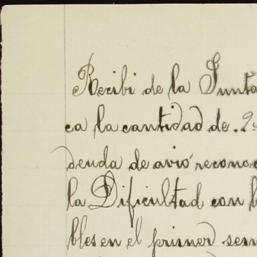 Recibi de la Junta
ca la cantidad de 2
deuda de avio recono
la Dificultad con l
bles en el primer sem